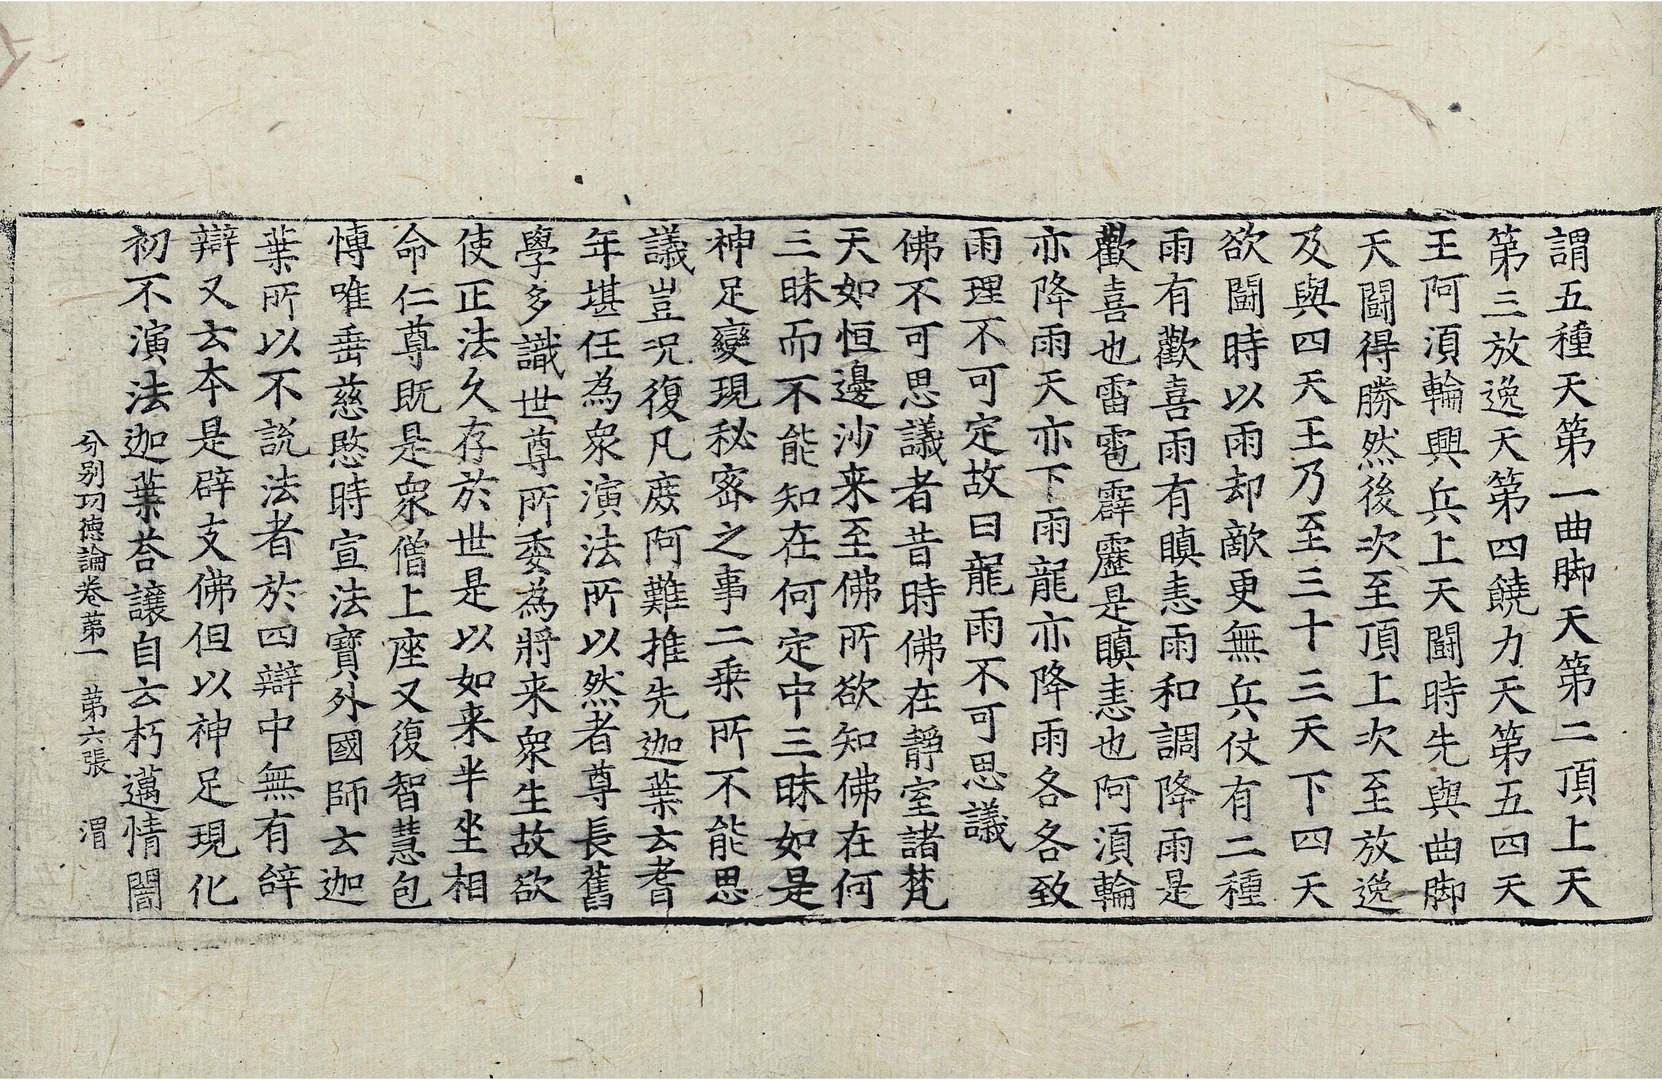 謂五種天第一曲脚天第二頂上天
第三放逸天第四饒力天第五四天
王阿湏輪興兵上天闘時先與曲脚
天闘得勝然後次至頂上次至放逸
及與四天王乃至三十三天下四天
欲闘時以雨却敵更無兵仗有二種
雨有歡喜雨有瞋恚雨和調降雨是
歡喜也雷雹霹靂是瞋恚也阿湏輪
亦降雨天亦下雨龍亦降雨各各致
雨理不可定故曰龍雨不可思議
佛不可思議者昔時佛在靜室諸梵
天如恒邊沙来至佛所欲知佛在何
三昧而不能知在何定中三昧如是
神足變現秘密之事二乗所不能思
議豈況復凡庶阿難推先迦葉云耆
年堪任為衆演法所以然者尊長舊
學多識世尊所委為將来衆生故欲
使正法久存於世是以如来半坐相
命仁尊既是衆僧上座又復智慧包
愽唯垂慈愍時宣法寶外國師云迦
葉所以不說法者於四辯中無有辝
辯又云本是辟支佛但以神足現化
初不演法迦葉荅讓自云朽邁情闇
分别功德論卷苐一 第六張 渭